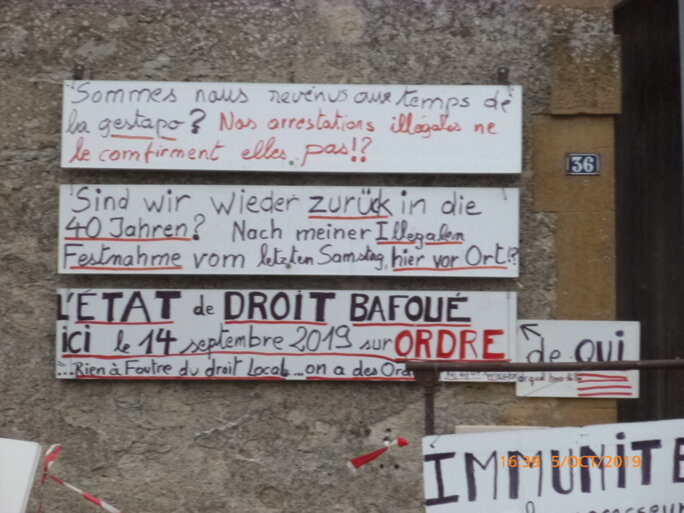 Sommes nous revenus aux temps de
la gestapo? Nos arrestations illégales ne
le comfirment elles pas!?
36
Sind wir wieder zurück in die
40 Jahren? Nach meiner Illegalen
Festnahme vom letzten Samstag, hier vor Ort!?
L'ÉTAT de DROIT BAFOUÉ
ici le 14 septembre 2019 sur ORDRE
de QUI
...Rien à Foutre du droit Local...on a des Ord
IMMUNITE
16:39 5/OCT/2019